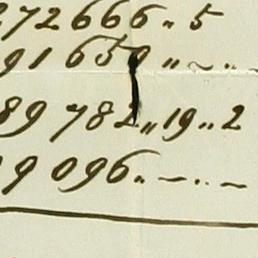 272666〃5
91650〃~..~
89782〃19..2
9096.~..~